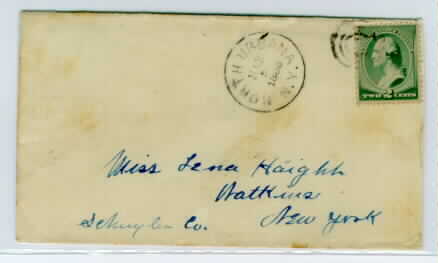 NORTH URBANA, N.Y.
TWO 2 CENTS
Miss Lena Haight
Watkins
Schuyler Co. New York